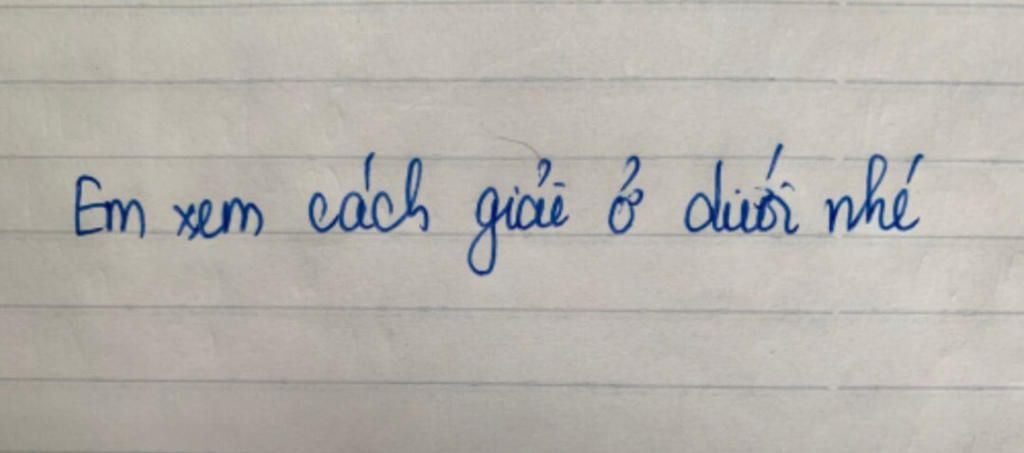 Em xem cách giải ở dưới nhé